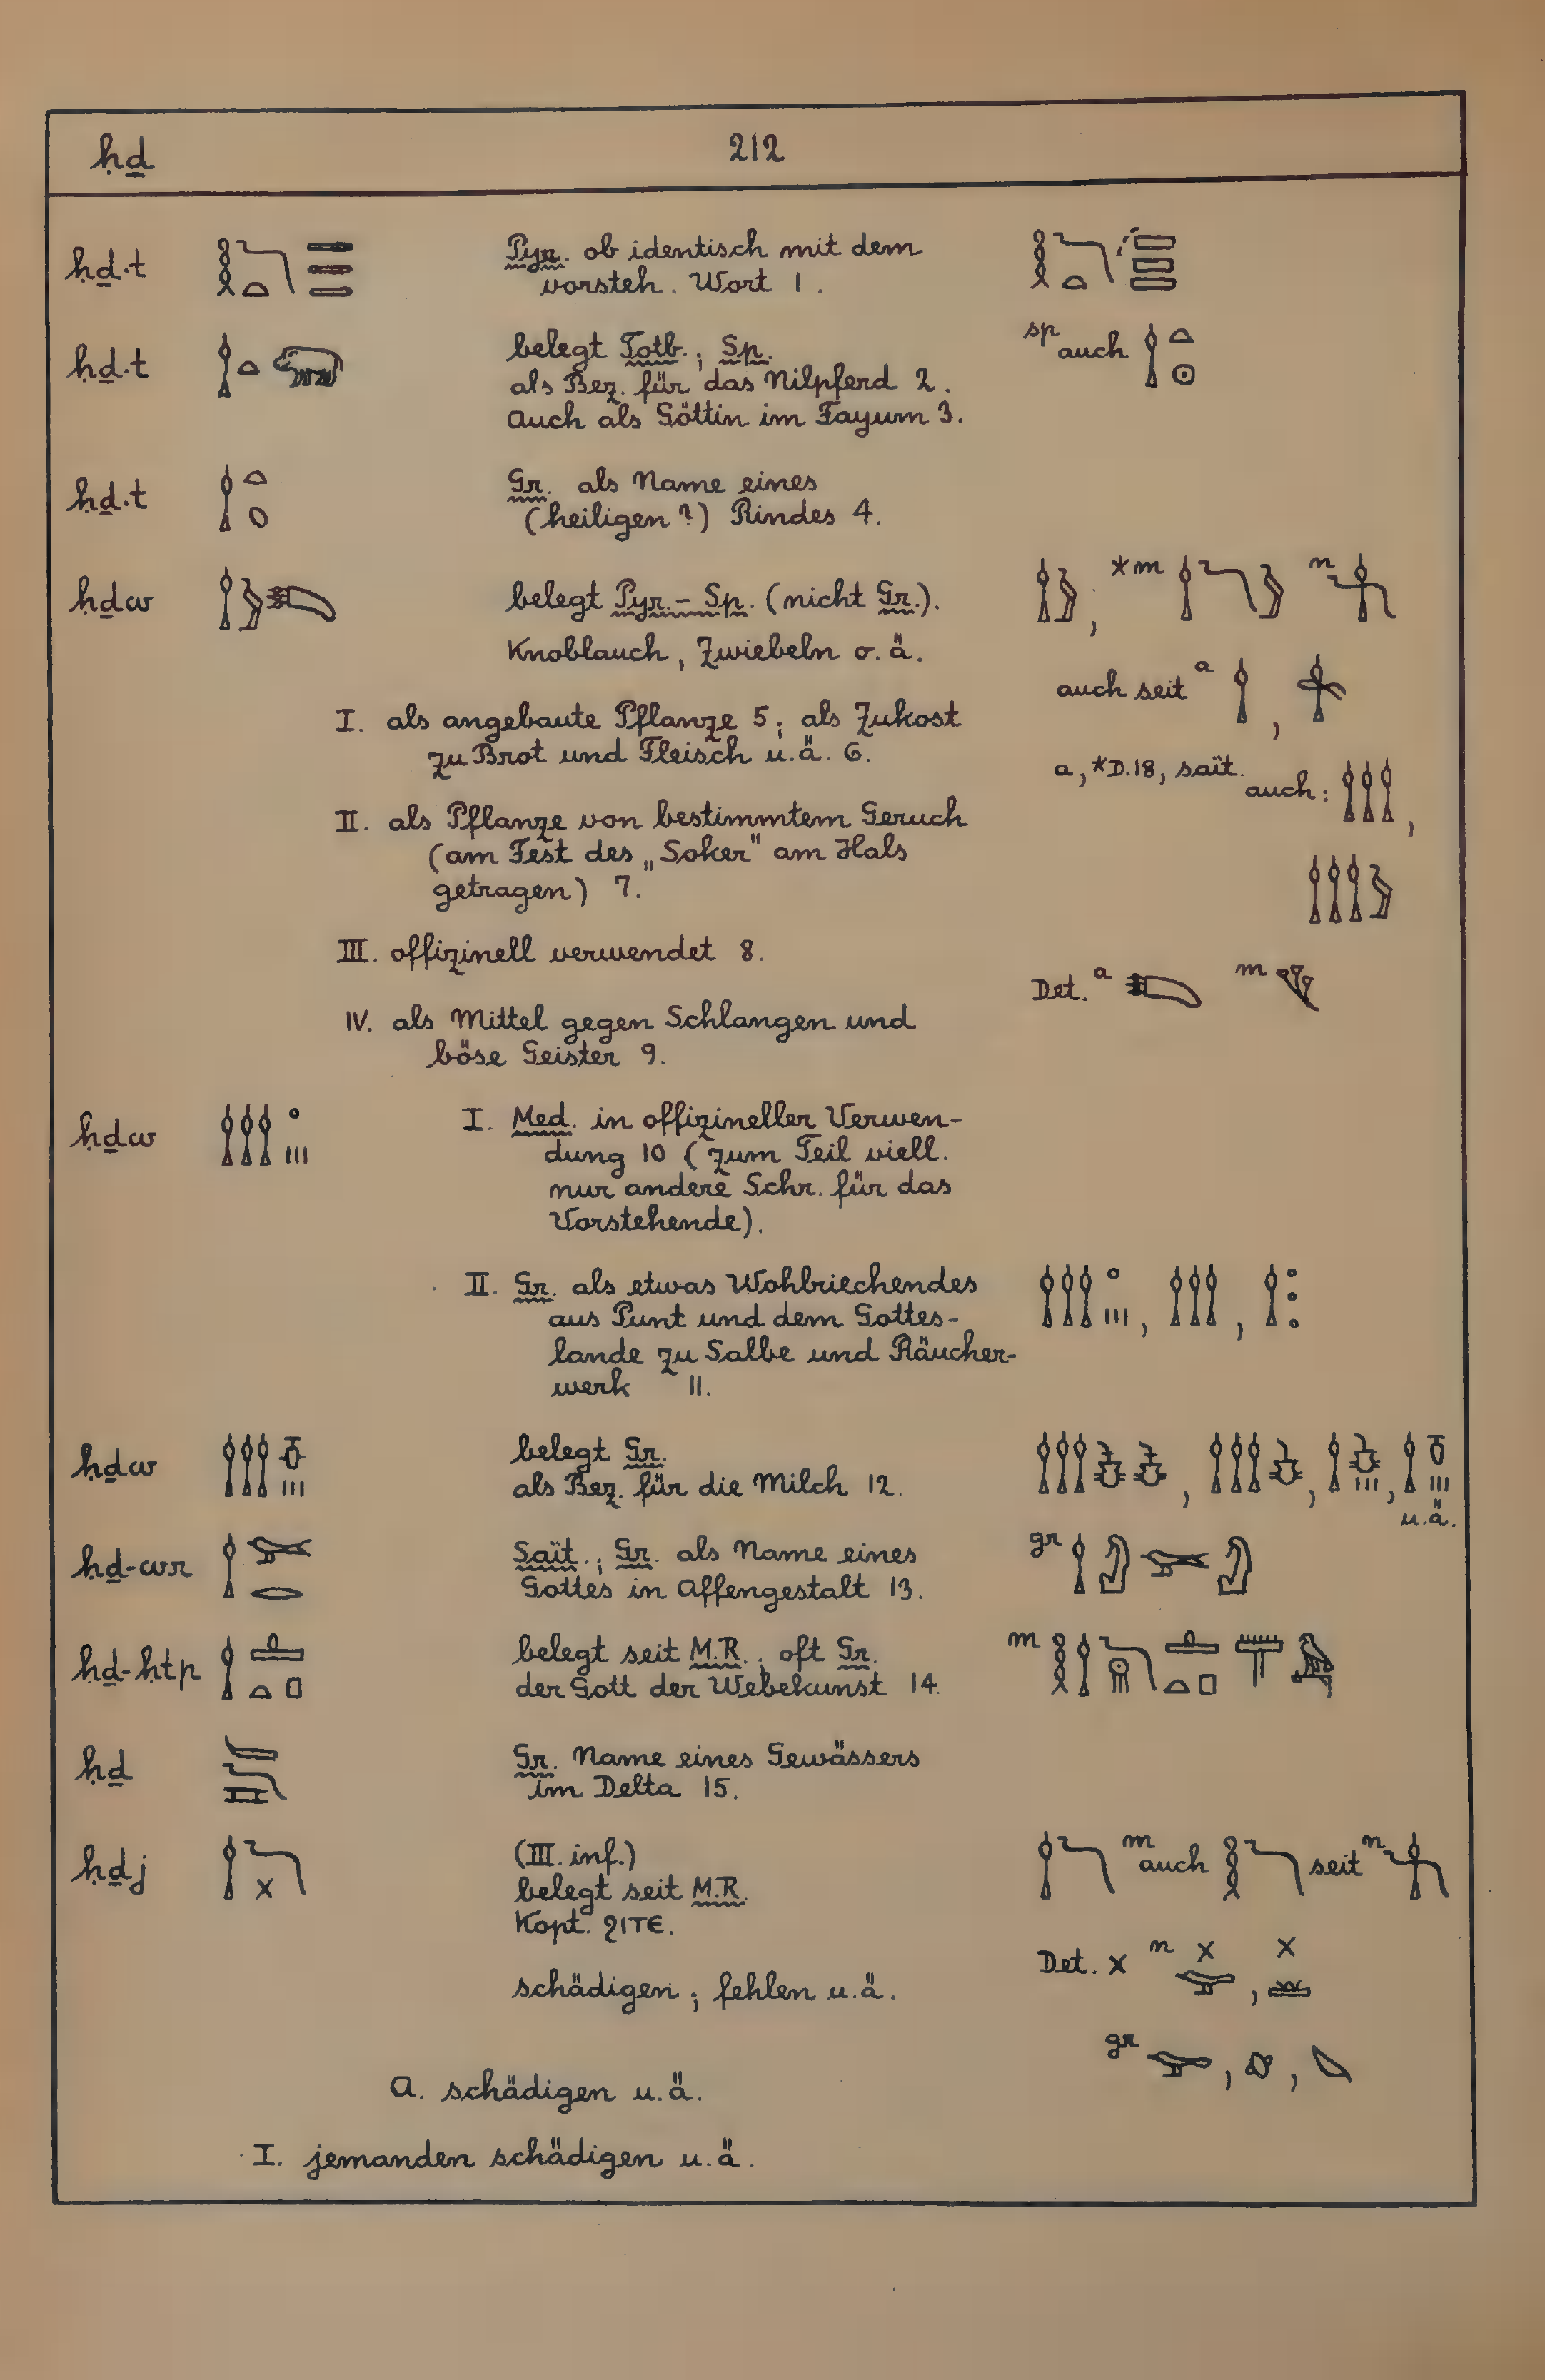 ḥḏ 212
ḥḏ.t Pyr. ob identisch mit dem
vorsteh. Wort 1.
ḥḏ.t belegt Totb.; Sp. sp auch
als Bez. für das Nilpferd 2.
Auch als Göttin im Fayum 3.
ḥḏ.t Gr. als Name eines
(heiligen?) Rindes 4.
ḥḏw belegt Pyr.-Sp. (nicht Gr.). , *m n
Knoblauch, Zwiebeln o.ä.
auch seit a ,
I. als angebaute Pflanze 5; als Zukost
zu Brot und Fleisch u.ä. 6.
a, *D.18, saït. auch: ,
II. als Pflanze von bestimmtem Geruch
(am Fest des „Soker" am Hals
getragen) 7.
III. offizinell verwendet 8.
Det. a m
IV. als Mittel gegen Schlangen und
böse Geister 9.
ḥḏw I. Med. in offizineller Verwen-
dung 10 (zum Teil viell.
nur andere Schr. für das
Vorstehende).
II. Gr. als etwas Wohlriechendes
aus Punt und dem Gottes-
lande zu Salbe und Räucher-
werk 11.
ḥḏw belegt Gr.
als Bez. für die Milch 12. u.ä.
ḥḏ-wr Saït.; Gr. als Name eines gr
Gottes in Affengestalt 13.
ḥḏ-ḥtp belegt seit M.R.; oft Gr. m
der Gott der Webekunst 14.
ḥḏ Gr. Name eines Gewässers
im Delta 15.
ḥḏj (III. inf.) m auch seit n
belegt seit M.R.
Kopt. ϩⲓⲧⲉ.
Det. x n
schädigen; fehlen u.ä.
gr
A. schädigen u.ä.
I. jemanden schädigen u.ä.